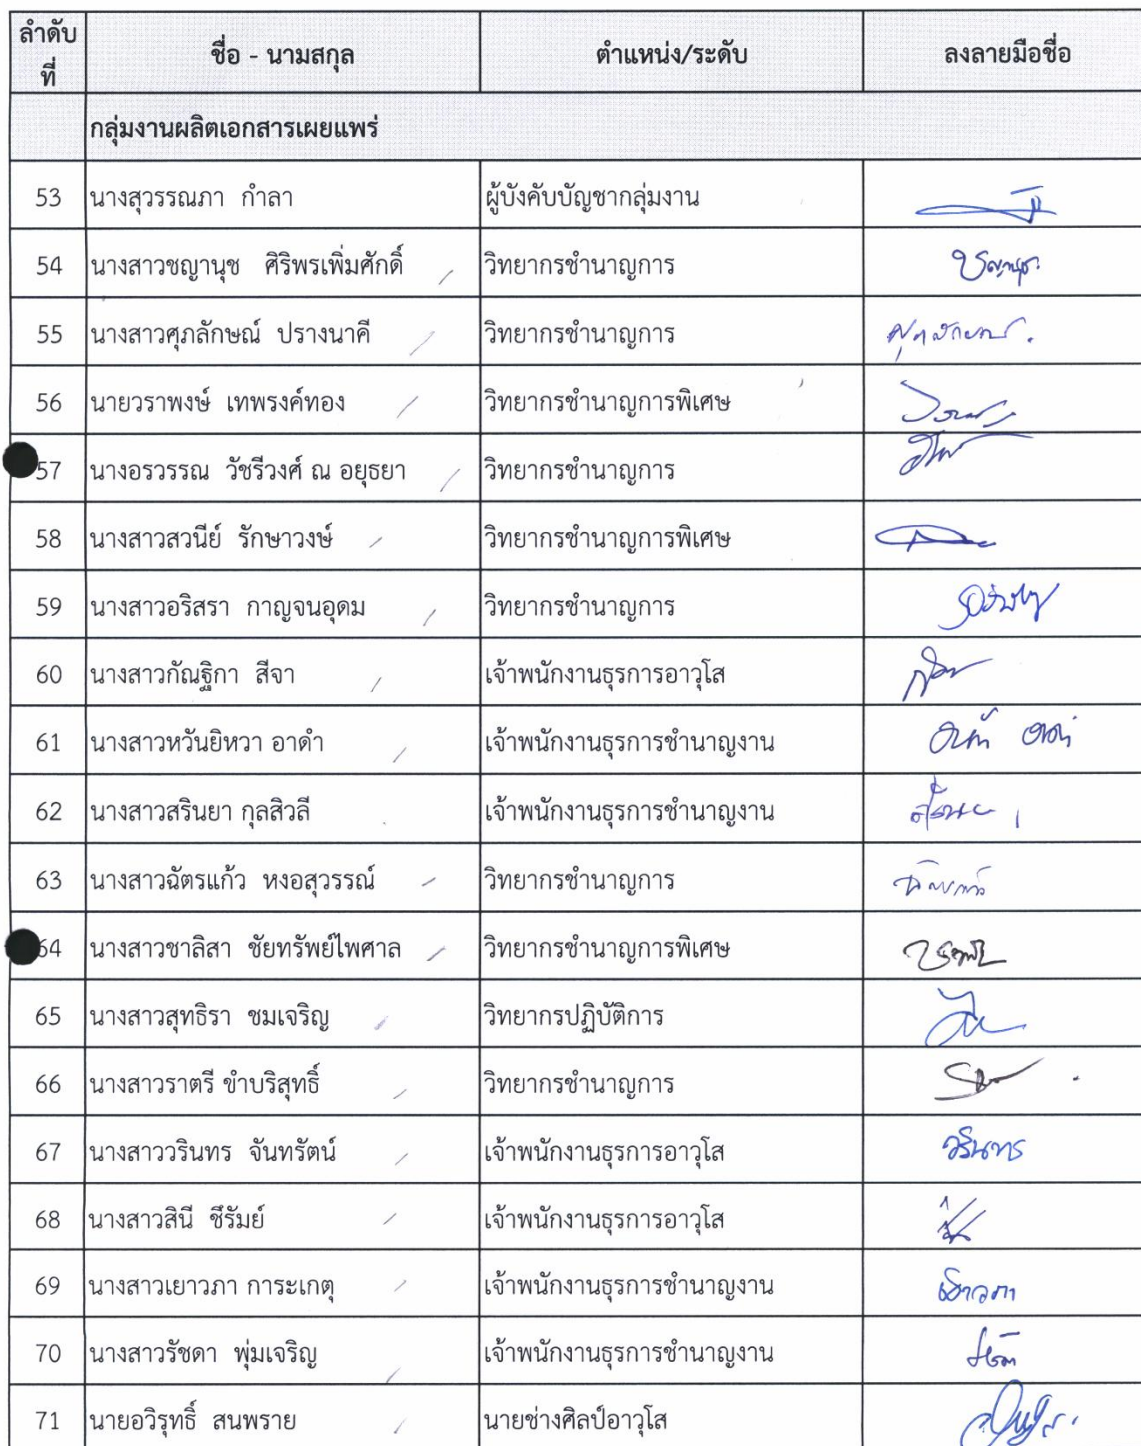 ลำดับที่ ชื่อ - นามสกุล ตำแหน่ง/ระดับ ลงลายมือชื่อ
กลุ่มงานผลิตเอกสารเผยแพร่
53 นางสุวรรณภา กำลา ผู้บังคับบัญชากลุ่มงาน
54 นางสาวชญานุช ศิริพรเพิ่มศักดิ์ วิทยากรชำนาญการ ชญานุช
55 นางสาวศุภลักษณ์ ปรางนาคี วิทยากรชำนาญการ ศุภลักษณ์
56 นายวราพงษ์ เทพรงค์ทอง วิทยากรชำนาญการพิเศษ
57 นางอรวรรณ วัชรีวงศ์ ณ อยุธยา วิทยากรชำนาญการ
58 นางสาวสวนีย์ รักษาวงษ์ วิทยากรชำนาญการพิเศษ
59 นางสาวอริสรา กาญจนอุดม วิทยากรชำนาญการ
60 นางสาวกัณฐิกา สีจา เจ้าพนักงานธุรการอาวุโส
61 นางสาวหวันยิหวา อาดำ เจ้าพนักงานธุรการชำนาญงาน
62 นางสาวสรินยา กุลสิวลี เจ้าพนักงานธุรการชำนาญงาน
63 นางสาวฉัตรแก้ว หงอสุวรรณ์ วิทยากรชำนาญการ
64 นางสาวชาลิสา ชัยทรัพย์ไพศาล วิทยากรชำนาญการพิเศษ
65 นางสาวสุทธิรา ชมเจริญ วิทยากรปฏิบัติการ
66 นางสาวราตรี ขำบริสุทธิ์ วิทยากรชำนาญการ
67 นางสาววรินทร จันทรัตน์ เจ้าพนักงานธุรการอาวุโส วรินทร
68 นางสาวสินี ชีรัมย์ เจ้าพนักงานธุรการอาวุโส
69 นางสาวเยาวภา การะเกตุ เจ้าพนักงานธุรการชำนาญงาน เยาวภา
70 นางสาวรัชดา พุ่มเจริญ เจ้าพนักงานธุรการชำนาญงาน
71 นายอวิรุทธิ์ สนพราย นายช่างศิลป์อาวุโส